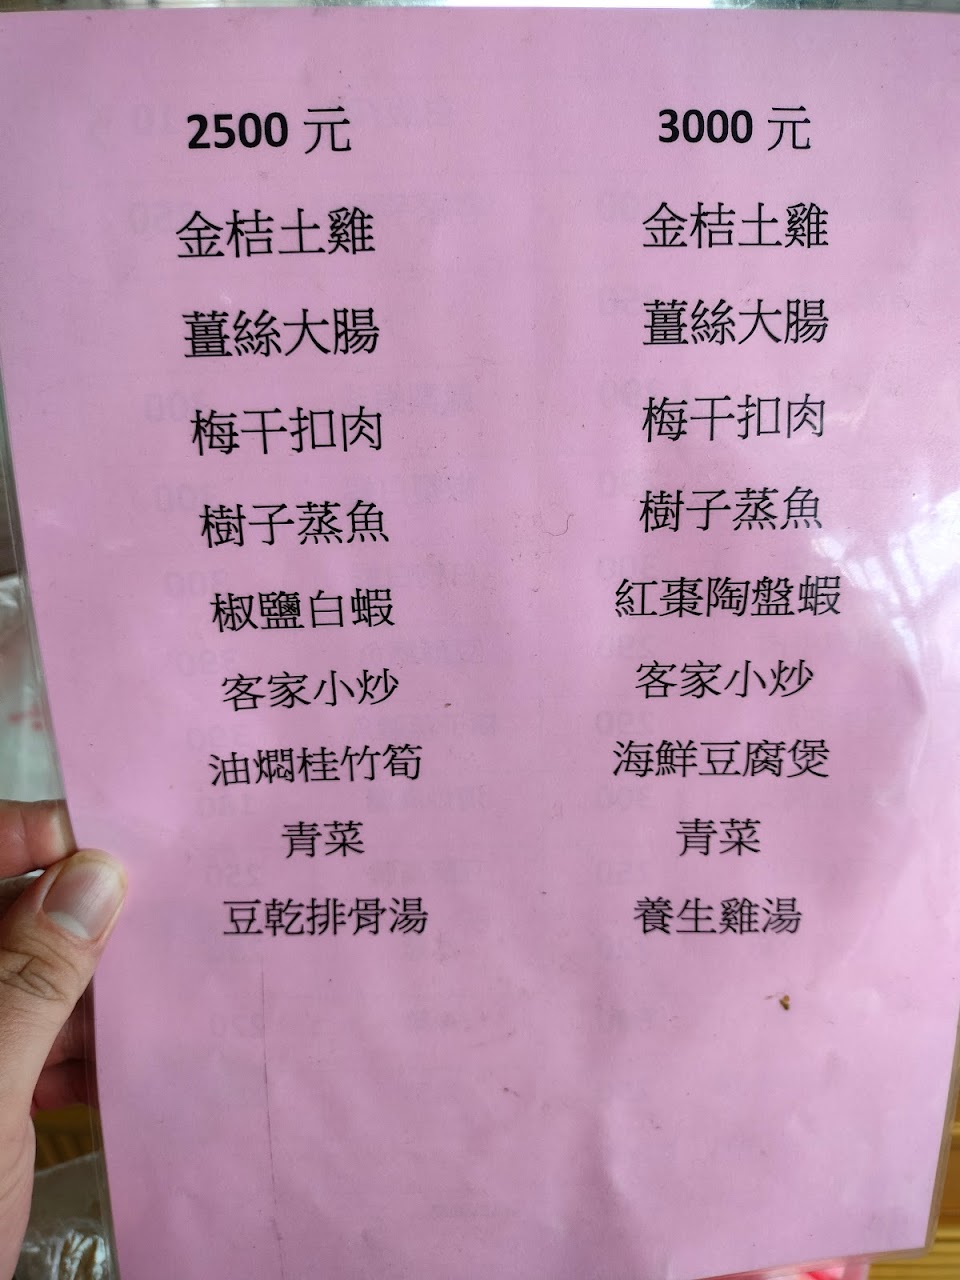 2500 元
金桔土雞
薑絲大腸
梅干扣肉
樹子蒸魚
椒鹽白蝦
客家小炒
油燜桂竹筍
青菜
豆乾排骨湯
3000 元
金桔土雞
薑絲大腸
梅干扣肉
樹子蒸魚
紅棗陶盤蝦
客家小炒
海鮮豆腐煲
青菜
養生雞湯